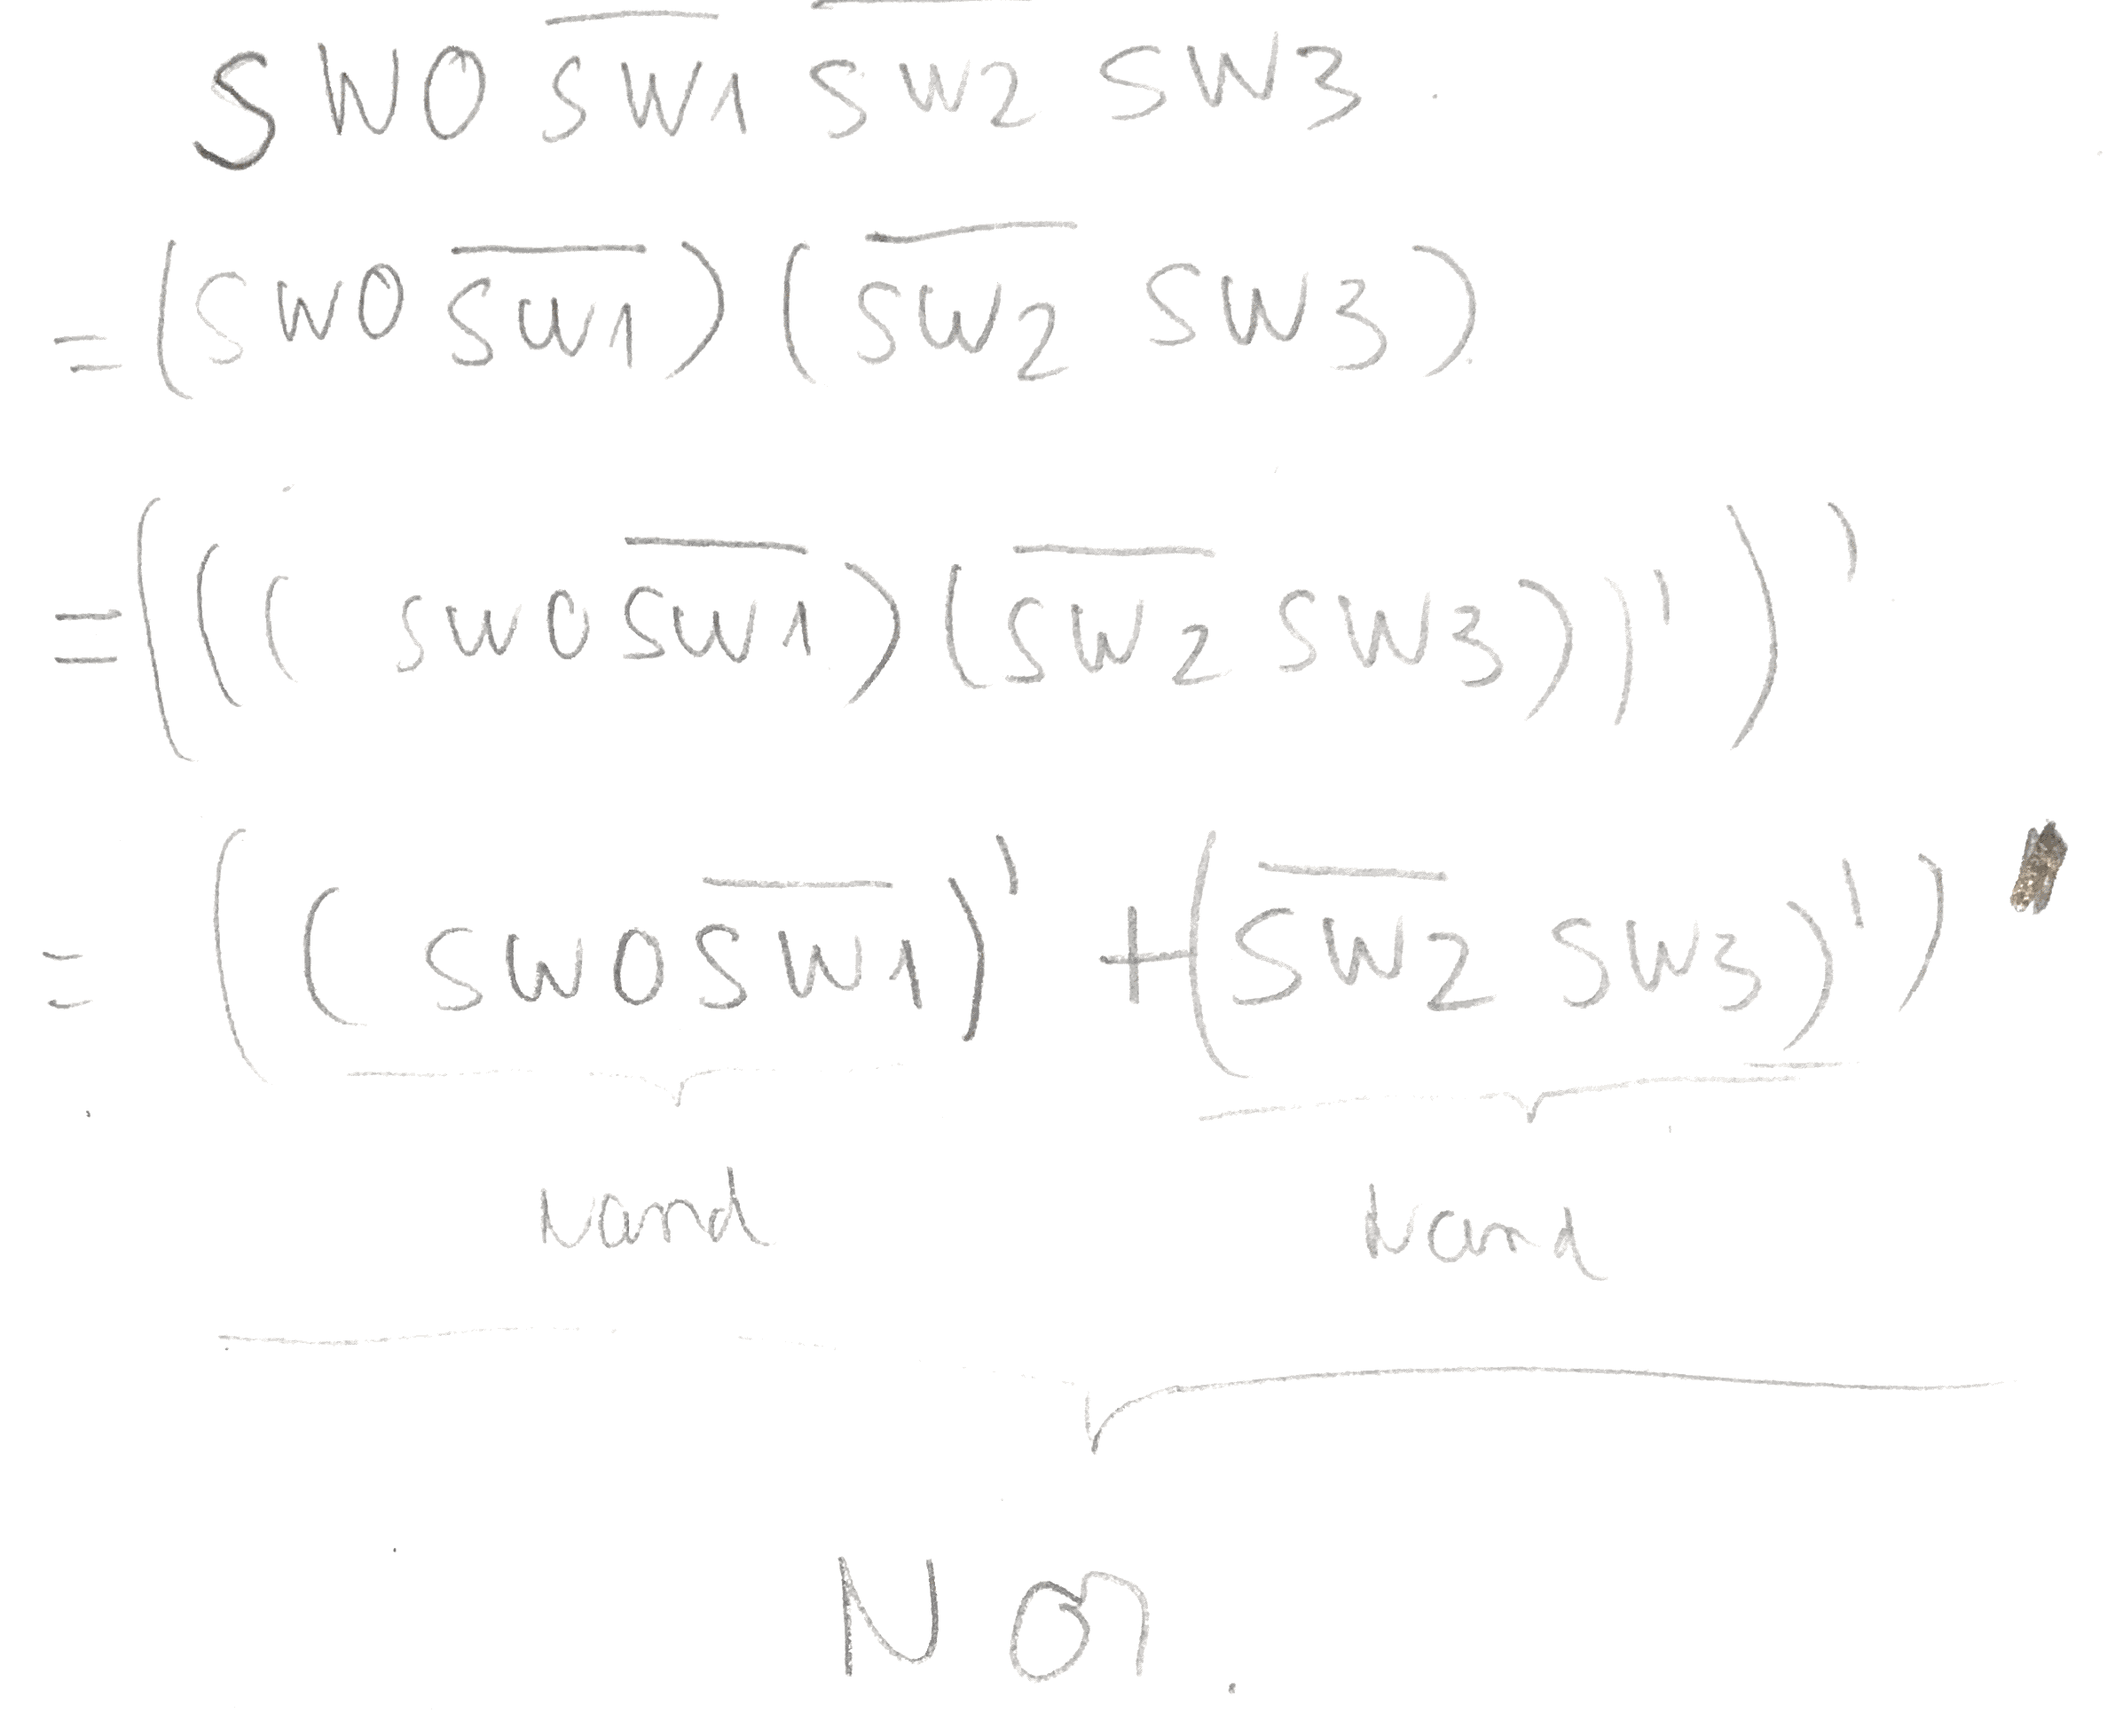 SW0 S̅W̅1̅ S̅W̅2̅ SW3
= (SW0 S̅W̅1̅) (S̅W̅2̅ SW3)
= (((SW0 S̅W̅1̅) (S̅W̅2̅ SW3))')'
= ((SW0 S̅W̅1̅)' + (S̅W̅2̅ SW3)')'
Nand Nand
Nor.